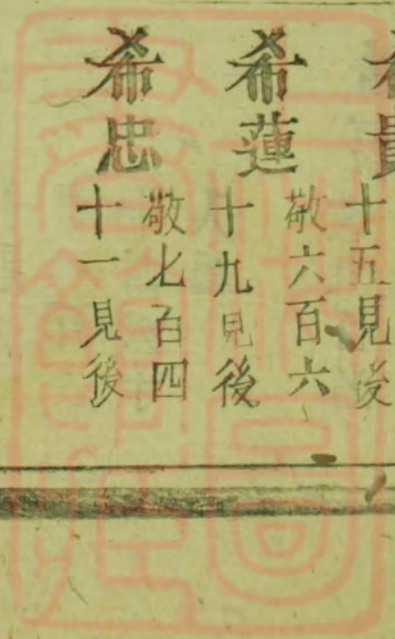 貴
十五見後
希蓮
敬六百六
十九見後
希忠
敬七百四
十一見後